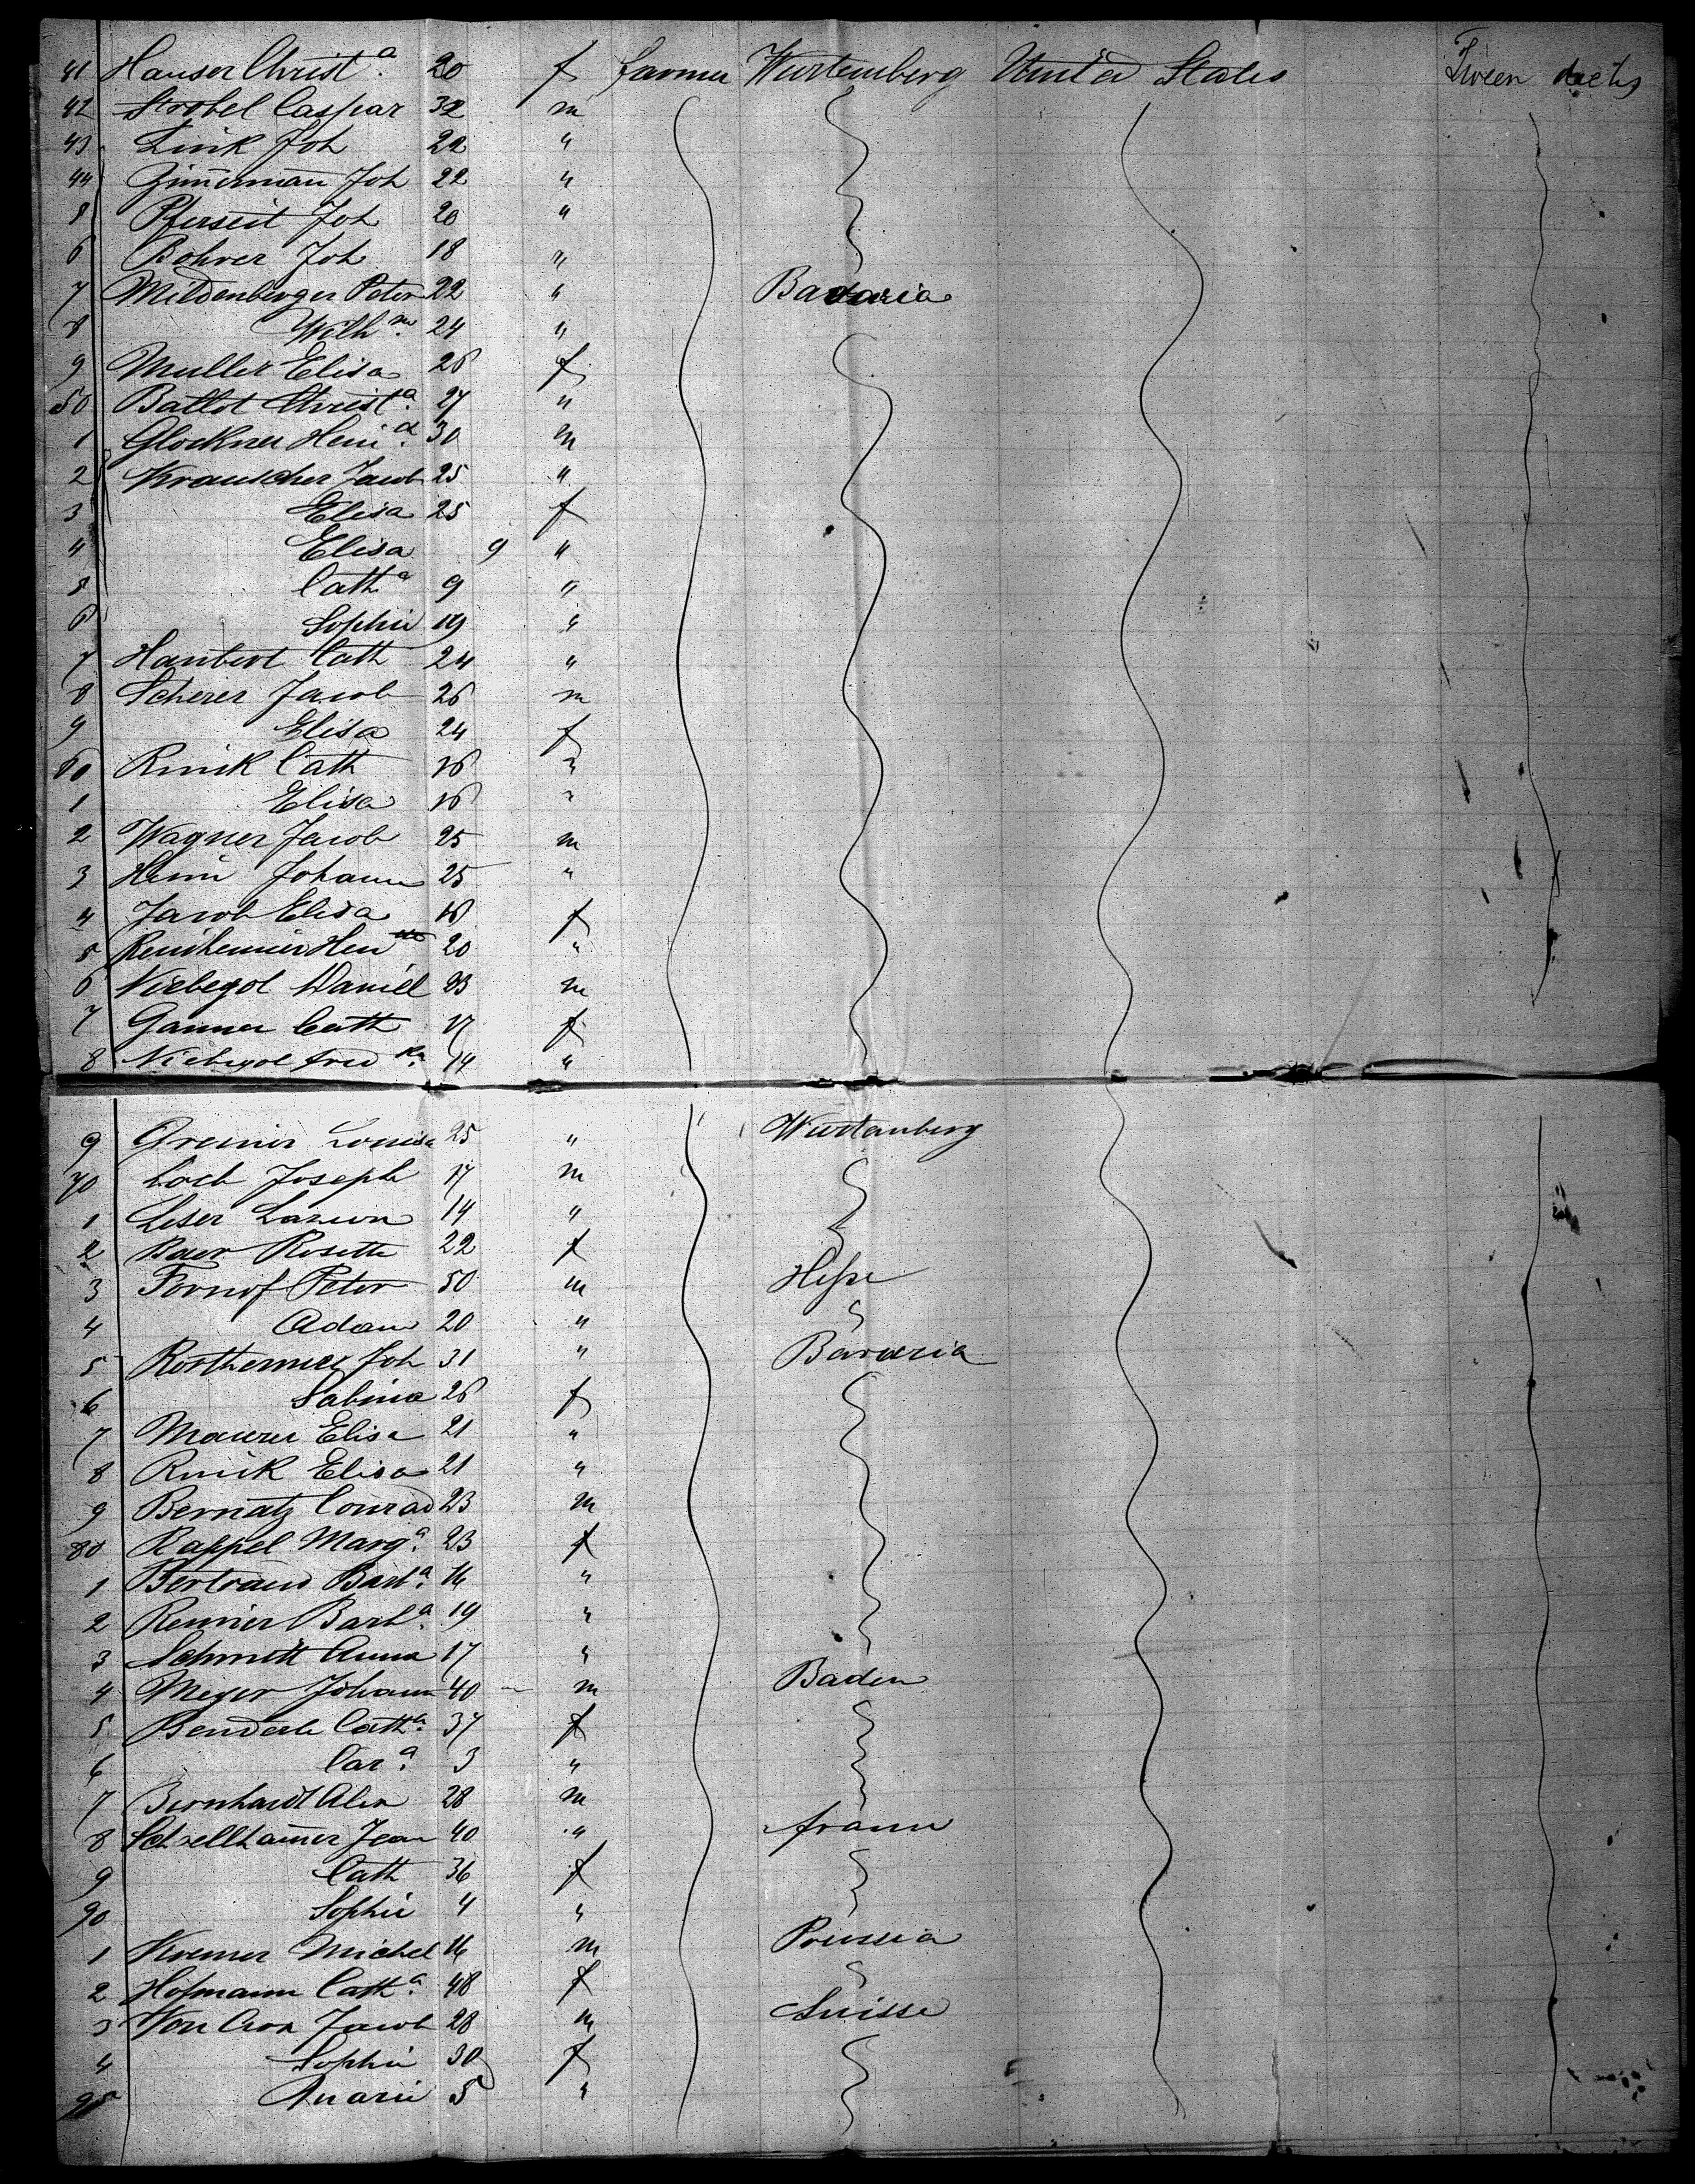 41 Hauser Christ.a 20 f farmer Wurtemberg United States Tween decks
42 Strobel Caspar 32 m
43 Link Joh 22 "
44 Zim̄erman Joh 22 "
5 Pferseit Joh 20 "
6 Bohrer Joh 18 "
7 Mildenberger Peter 22 " Bavaria
8 Wilh.m 24 "
9 Muller Elisa 26 f
50 Ballot Christ.a 27 "
1 Glockner Hein 30 m
2 Krauscher Jacob 25 "
3 Elisa 25 f
4 Elisa 9 "
5 Cath.a 9 "
6 Sophie 19 "
7 Haubert Cath 24 "
8 Scherer Jacob 26 m
9 Elisa 24 f
60 Rinik Cath 16 "
1 Elisa 16 "
2 Wagner Jacob 25 m
3 Johann 25 "
4 Jacob Elisa 16 f
5 Hen 20 "
6 Niebergol Daniel 23 m
7 Ganner Cath 17 f
8 Niebergol Fred.ka 14 "
9 Greiner Louisa 25 " Wurtemberg
70 Loch Joseph 17 m
1 Leser 14 "
2 Baer Rosette 22 f
3 Fornof Peter 50 m Hesse
4 Adam 20 "
5 Joh 31 " Bavaria
6 Sabina 26 f
7 Maurer Elisa 21 "
8 Rinik Elisa 21 "
9 Bernatz Conrad 23 m
80 Rappel Marg.a 23 f
1 Bertrand Barb.a 16 "
2 Renner Barb.a 19 "
3 Schmitt Anna 17 "
4 Meyer Johann 40 m Baden
5 Benderle Cath.a 37 f
6 Car.a 3 "
7 Bernhardt Alex 28 m
8 Schellham̄er Jean 40 " france
9 Cath 36 f
90 Sophie 4 "
1 Kremer Michel 16 m Prussia
2 Hofmann Cath.a 48 f
3 Von Arx Jacob 28 m Suisse
4 Sophie 30 f
95 5 "